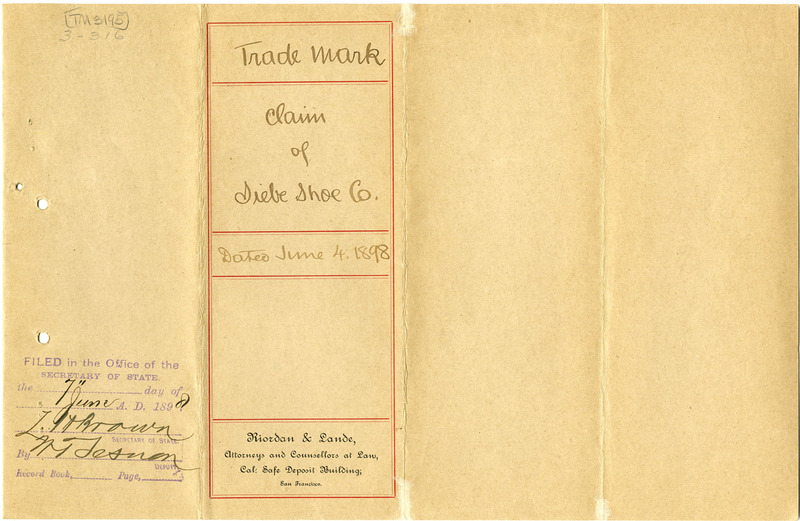 [TM3195]
3-316
Trade Mark
Claim
of
Siebe Shoe Co.
Dated June 4. 1898
FILED in the Office of the
SECRETARY OF STATE.
the 7" day of
June A. D. 1898
L. H. Brown
SECRETARY OF STATE
By
DEPUTY
Record Book, Page,
Riordan & Lande,
Attorneys and Counsellors at Law,
Cal: Safe Deposit Building;
San Francisco.